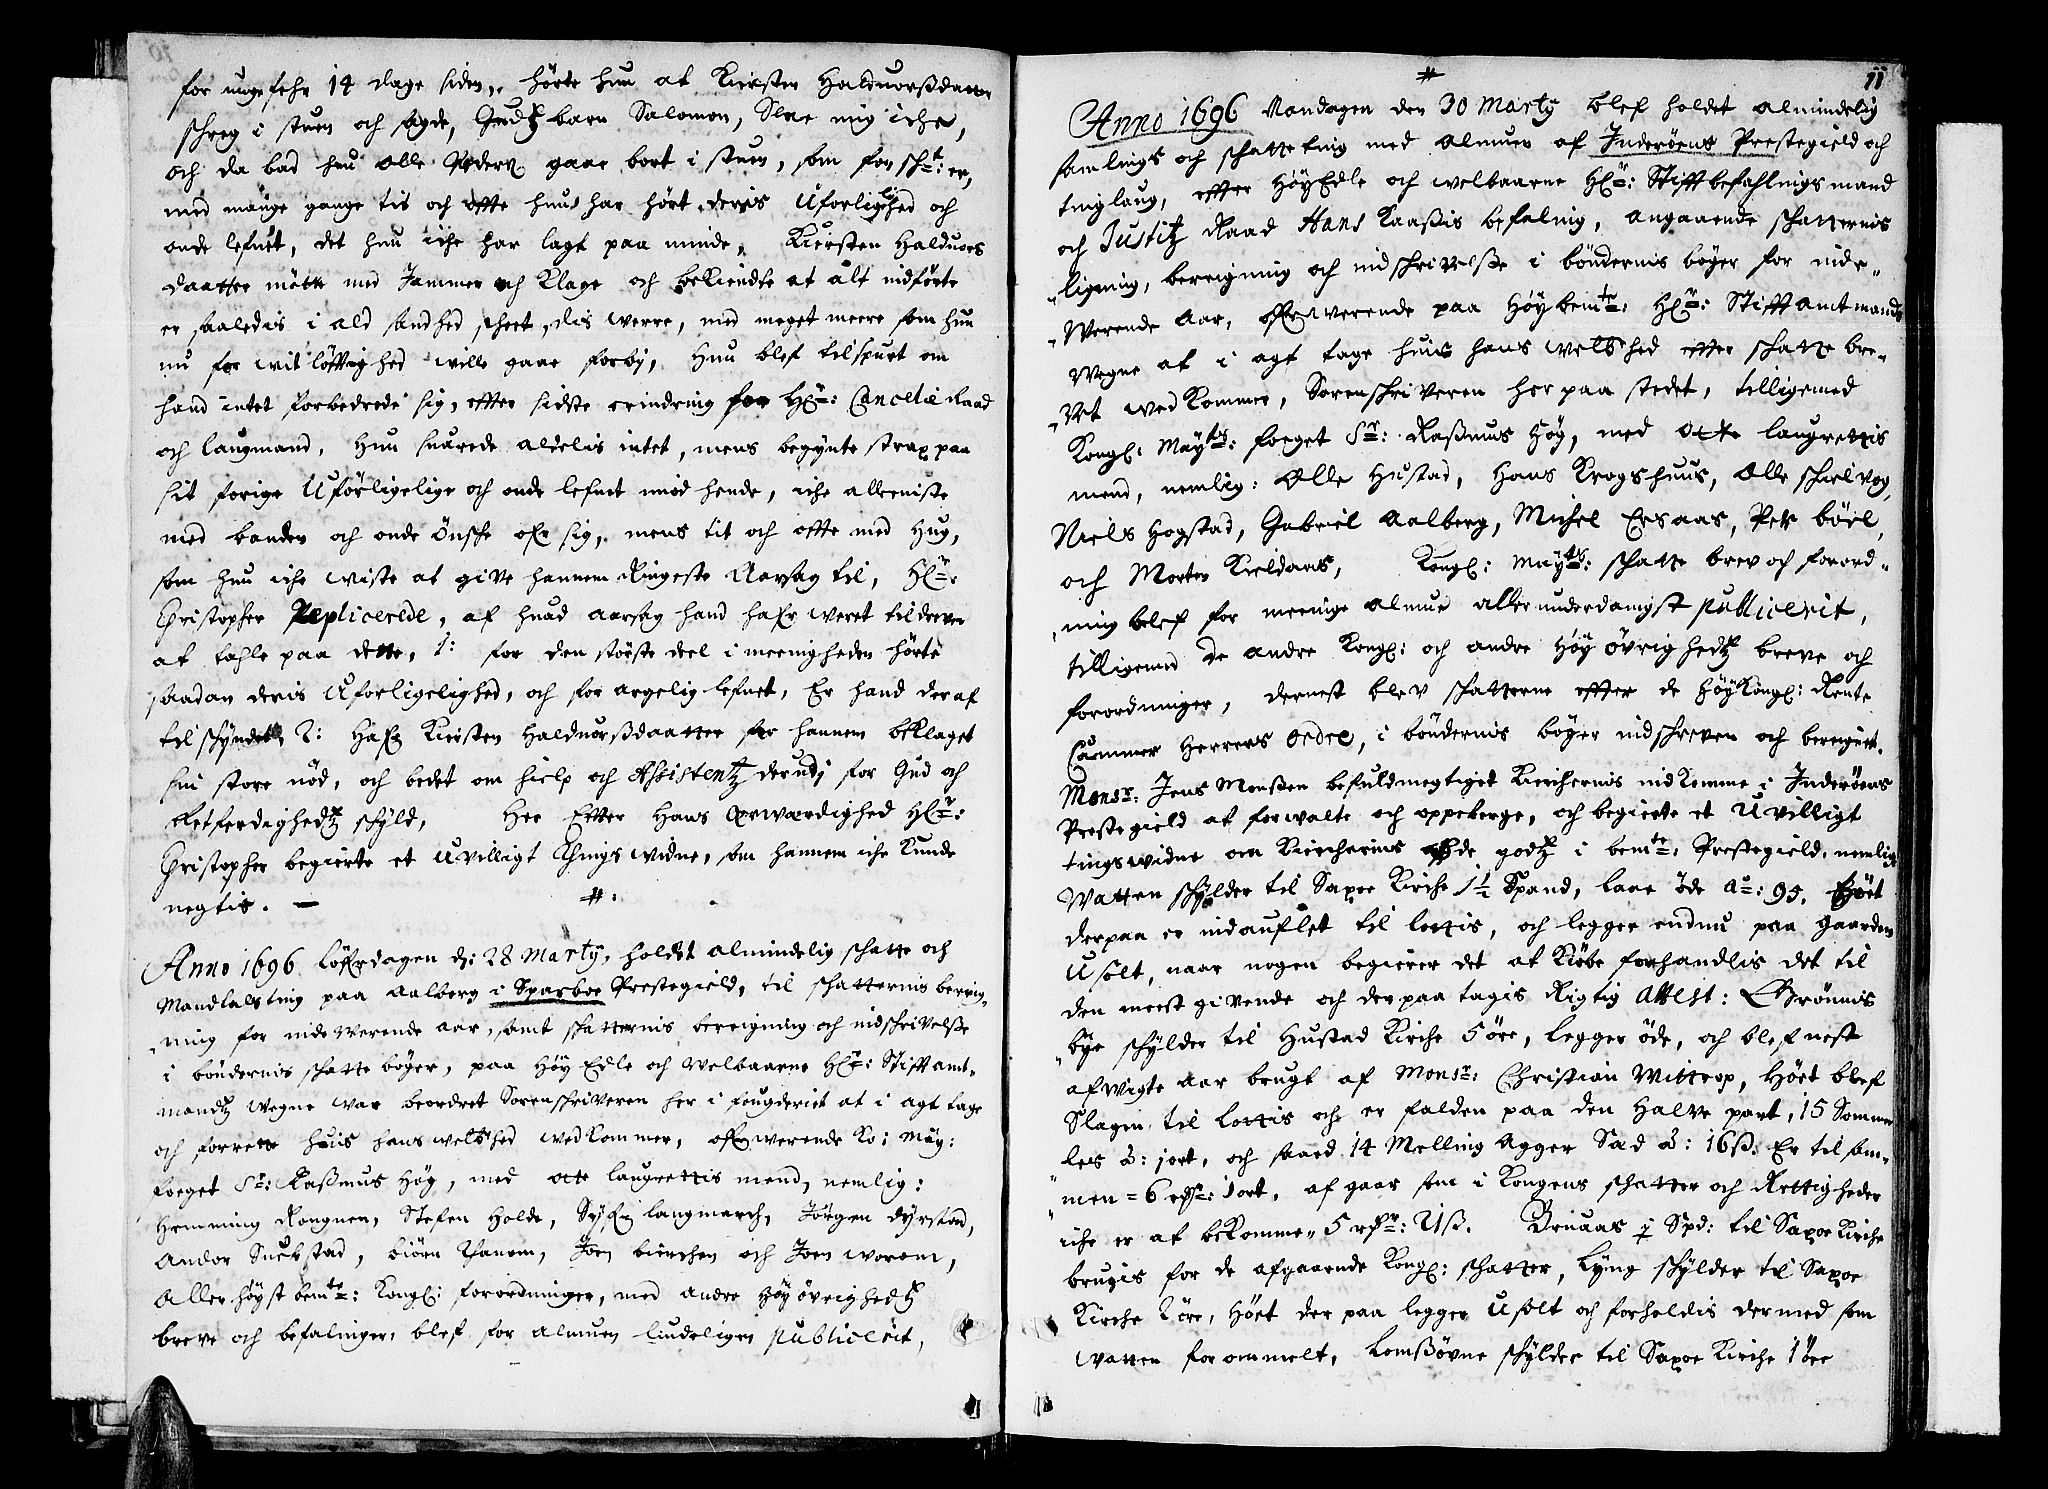 for ungefehr 14 dage siden, hörte hun at Kirsten Halduorßdatter
schreg i stuen och sagde, Gudtz barn Salomon, Slae mig iche,
och da bad hun Olle Pedersn gaae bort i stuen, som for scht: er,
med mange gange tit och offte hun har hört deris Uforlighed och
onde lefnet, det hun iche har lagt paa minde, Kiersten Halduors
daatter mötte med Jammer och Klage och bekiendte at alt indförte
er saaledis i ald sandhed scheet, dis werre, med meget meere som hun
nu for witløfftighed wille gaae forby, Hun blef tilspurt om
hand intet forbedrede sig, effter sidste erindring for Hr: Cancelie Raad
och laugmand, Hun suarede aldelis intet, mens begynte strax paa
sit forige Uförligelige och onde lefnet imod hende, iche alleeniste
med banden och onde Önsche ofr sig, mens tit och offte med Hug,
som hun iche wiste at give hannem Ringeste Aarsag til, Hr:
Christopher Replicerede, af huad aarsag hand hafr weret tildreven
at tahle paa dette, 1: for den störste deel i meenigheden hörte
saadan deris Uforligelighed, och for argelig lefnet, Er hand deraf
tilschyndet, 2: hafr Kiersten Halduorßdaatter for hannem beklaget
sin store nöd, och bedet om hielp och Assistentz derudj for Gud och
Retferdighedtz schyld, Her Effter Hans Ærwærdighed Hr:
Christopher begierte et Uvilligt Thingswidne, som hannem iche Kunde
negtis. —
#.
Anno 1696 Löfrdagen d: 28 Marty, holdet almindelig schatte och
Mandtals ting paa Aalberg i Sparboe Prestegield, til schatternis bereig-
ning for indewerende aar, samt schatternis bereigning och indschrivelsse
i böndernis schatte böger, paa Höy Edle och Welbaarne Hr: Stifft amt-
mandtz wegne war beordret Sorenschriveren her i fougderiet at i agt tage
och forrette huis hans welbhed wedkommer, ofrwerende Ko: May:
foeget Sr: Raßmus Höy, med otte laugrettis mend, nemlig:
Hemming Rongnen, Stefen Holde, Syfr langmarch, Jörgen dyrstad,
Andor Sneebstad, biörn Thanem, Joen birchen och Joen Worem,
Aller höyst bemte: Kongl: forordninger, med andre Höy övrighedtz
breve och befalinger, blef for almuen liudeligen publicerit,
#
11
Anno 1696 Mandagen den 30 Marty blef holdet almindelig
samlings och schatte ting med almuen af Inderöens Prestegield och
tinglaug, effter HöyEdle och welbaarne Hr: Stifftbefahlingsmand
och Justitz Raad Hans Kaaßis befaling, angaaende schatternis
ligning, bereigning och indschrivelsse i böndernis böger for inde-
werende Aar, ofrwerende paa Höybemte: Hr: Stifftamtmands
Wegne at i agt tage huis hans welbhed effter schatte bre-
vet wedkommer, Sorenschriveren her paa stedet, tilligemed
Kongl: Mayts: foeget Sr: Raßmus Höy, med otte laugrettis
mend, nemlig: Olle Hustad, Hans Krogshuus, Olle schielvog,
Niels Hogstad, Gabriel Aalberg, Michel Ersaas, Per böel,
och Morten Kieldaas, Kongl: Mayts: schatte brev och forord-
ning blef for meenige almue allerunderdanigst publicerit,
tilligemed de andre Kongl: och andre Höy övrighedtz breve och
forordninger, dernest blev schatterne effter de HöyKongl: Rente
Cammer Herrers Ordre, i böndernis böger indschreven och bereignet.
Monsr: Jens Monßen befuldmegtiget Kirchernis indkomme i Inderöens
Prestegield at forwalte och oppeberge, och begierte et Uvilligt
tingswidne om Kirchernis öde godtz i bemte: Prestegield, nemlig
Watten schylder til Saxoe Kirche 1½ Spand, laae öde Ao: 95. Höet
derpaa er indauflet til lottis, och legger endnu paa gaarden
Usolt, naar nogen begierer det at Kiöbe forhandlis det til
den meest givende och derpaa tagis Rigtig Attest: Grönnis
bye schylder til Hustad Kirche 5 öre, legger öde, och blef nest
afwigte Aar brugt af Monsr: Christian Wittrop, Höet blef
Slagen til lottis och er falden paa den Halve part, 15 Somme
les à: 1ort, och saaed 14 Melling Agger Sad à: 16ß. Er tilsam-
men = 6 rdr: 1ort, af gaar som i Kongens schatter och Rettigheder
iche er at bekomme 5 rdr: 21ß. Bruaas ½ Spd: til Saxoe Kirche
brugis for de afgaaende Kongl: schatter, Lyng schylder til Saxoe
Kirche 2 öre, Höet der paa legger Usolt och forholdis dermed som
Watten forommelt, Lomßövne schylder til Saxoe Kirche 1 öre